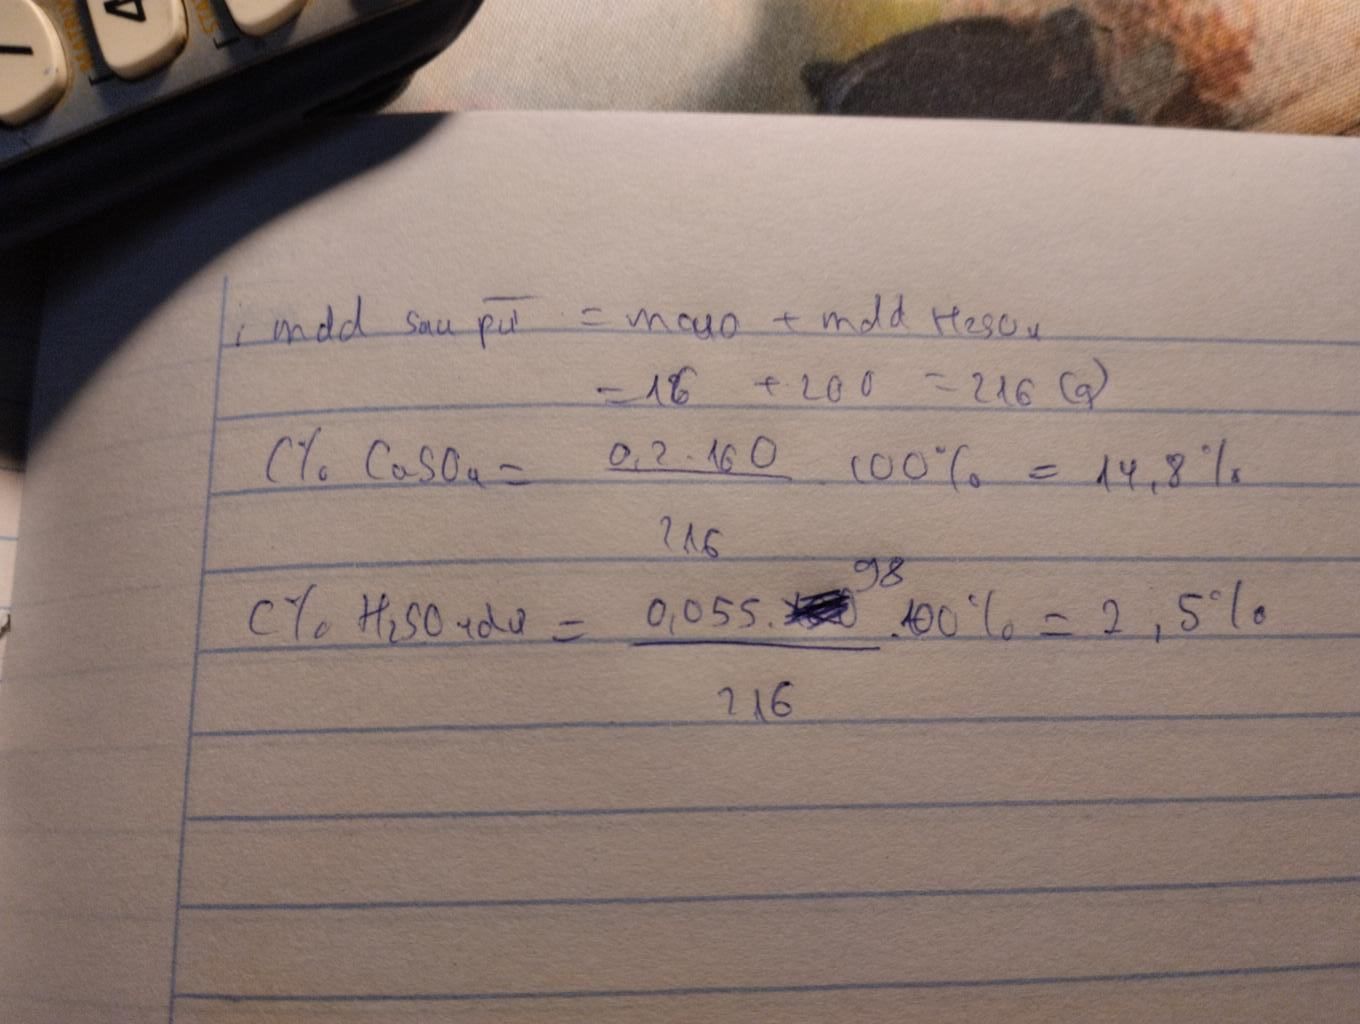 mdd sau pư = mCuO + mdd H2SO4
= 16 + 200 = 216 (g)
C% CuSO4 = 0,2 . 160 / 216 . 100% = 14,8%
C% H2SO4 dư = 0,055 . 98 / 216 . 100% = 2,5%